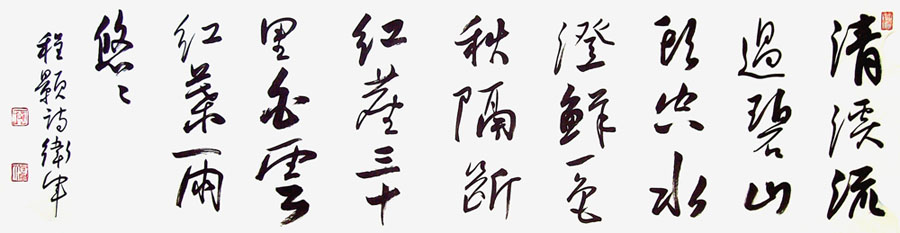 清溪流
過碧山
頭空水
澄鮮一色
秋隔斷
紅塵三十
里白雲
紅葉兩
悠々
程顥詩衛軍